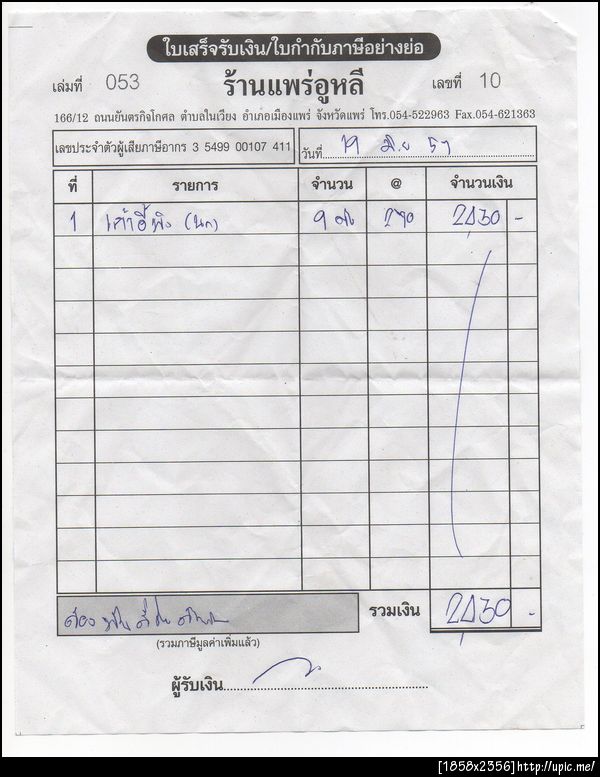 ใบเสร็จรับเงิน/ใบกำกับภาษีอย่างย่อ
เล่มที่ 053 ร้านแพร่อูหลี เลขที่ 10
166/12 ถนนยันตรกิจโกศล ตำบลในเวียง อำเภอเมืองแพร่ จังหวัดแพร่ โทร.054-522963 Fax.054-621363
เลขประจำตัวผู้เสียภาษีอากร 3 5499 00107 411 วันที่ 19 มิ.ย 57
ที่ รายการ จำนวน @ จำนวนเงิน
1 เก้าอี้พิง (นก) 9 ตัว 270 2430 -
รวมเงิน 2430 -
(รวมภาษีมูลค่าเพิ่มแล้ว)
ผู้รับเงิน
[1858x2356]http://upic.me/